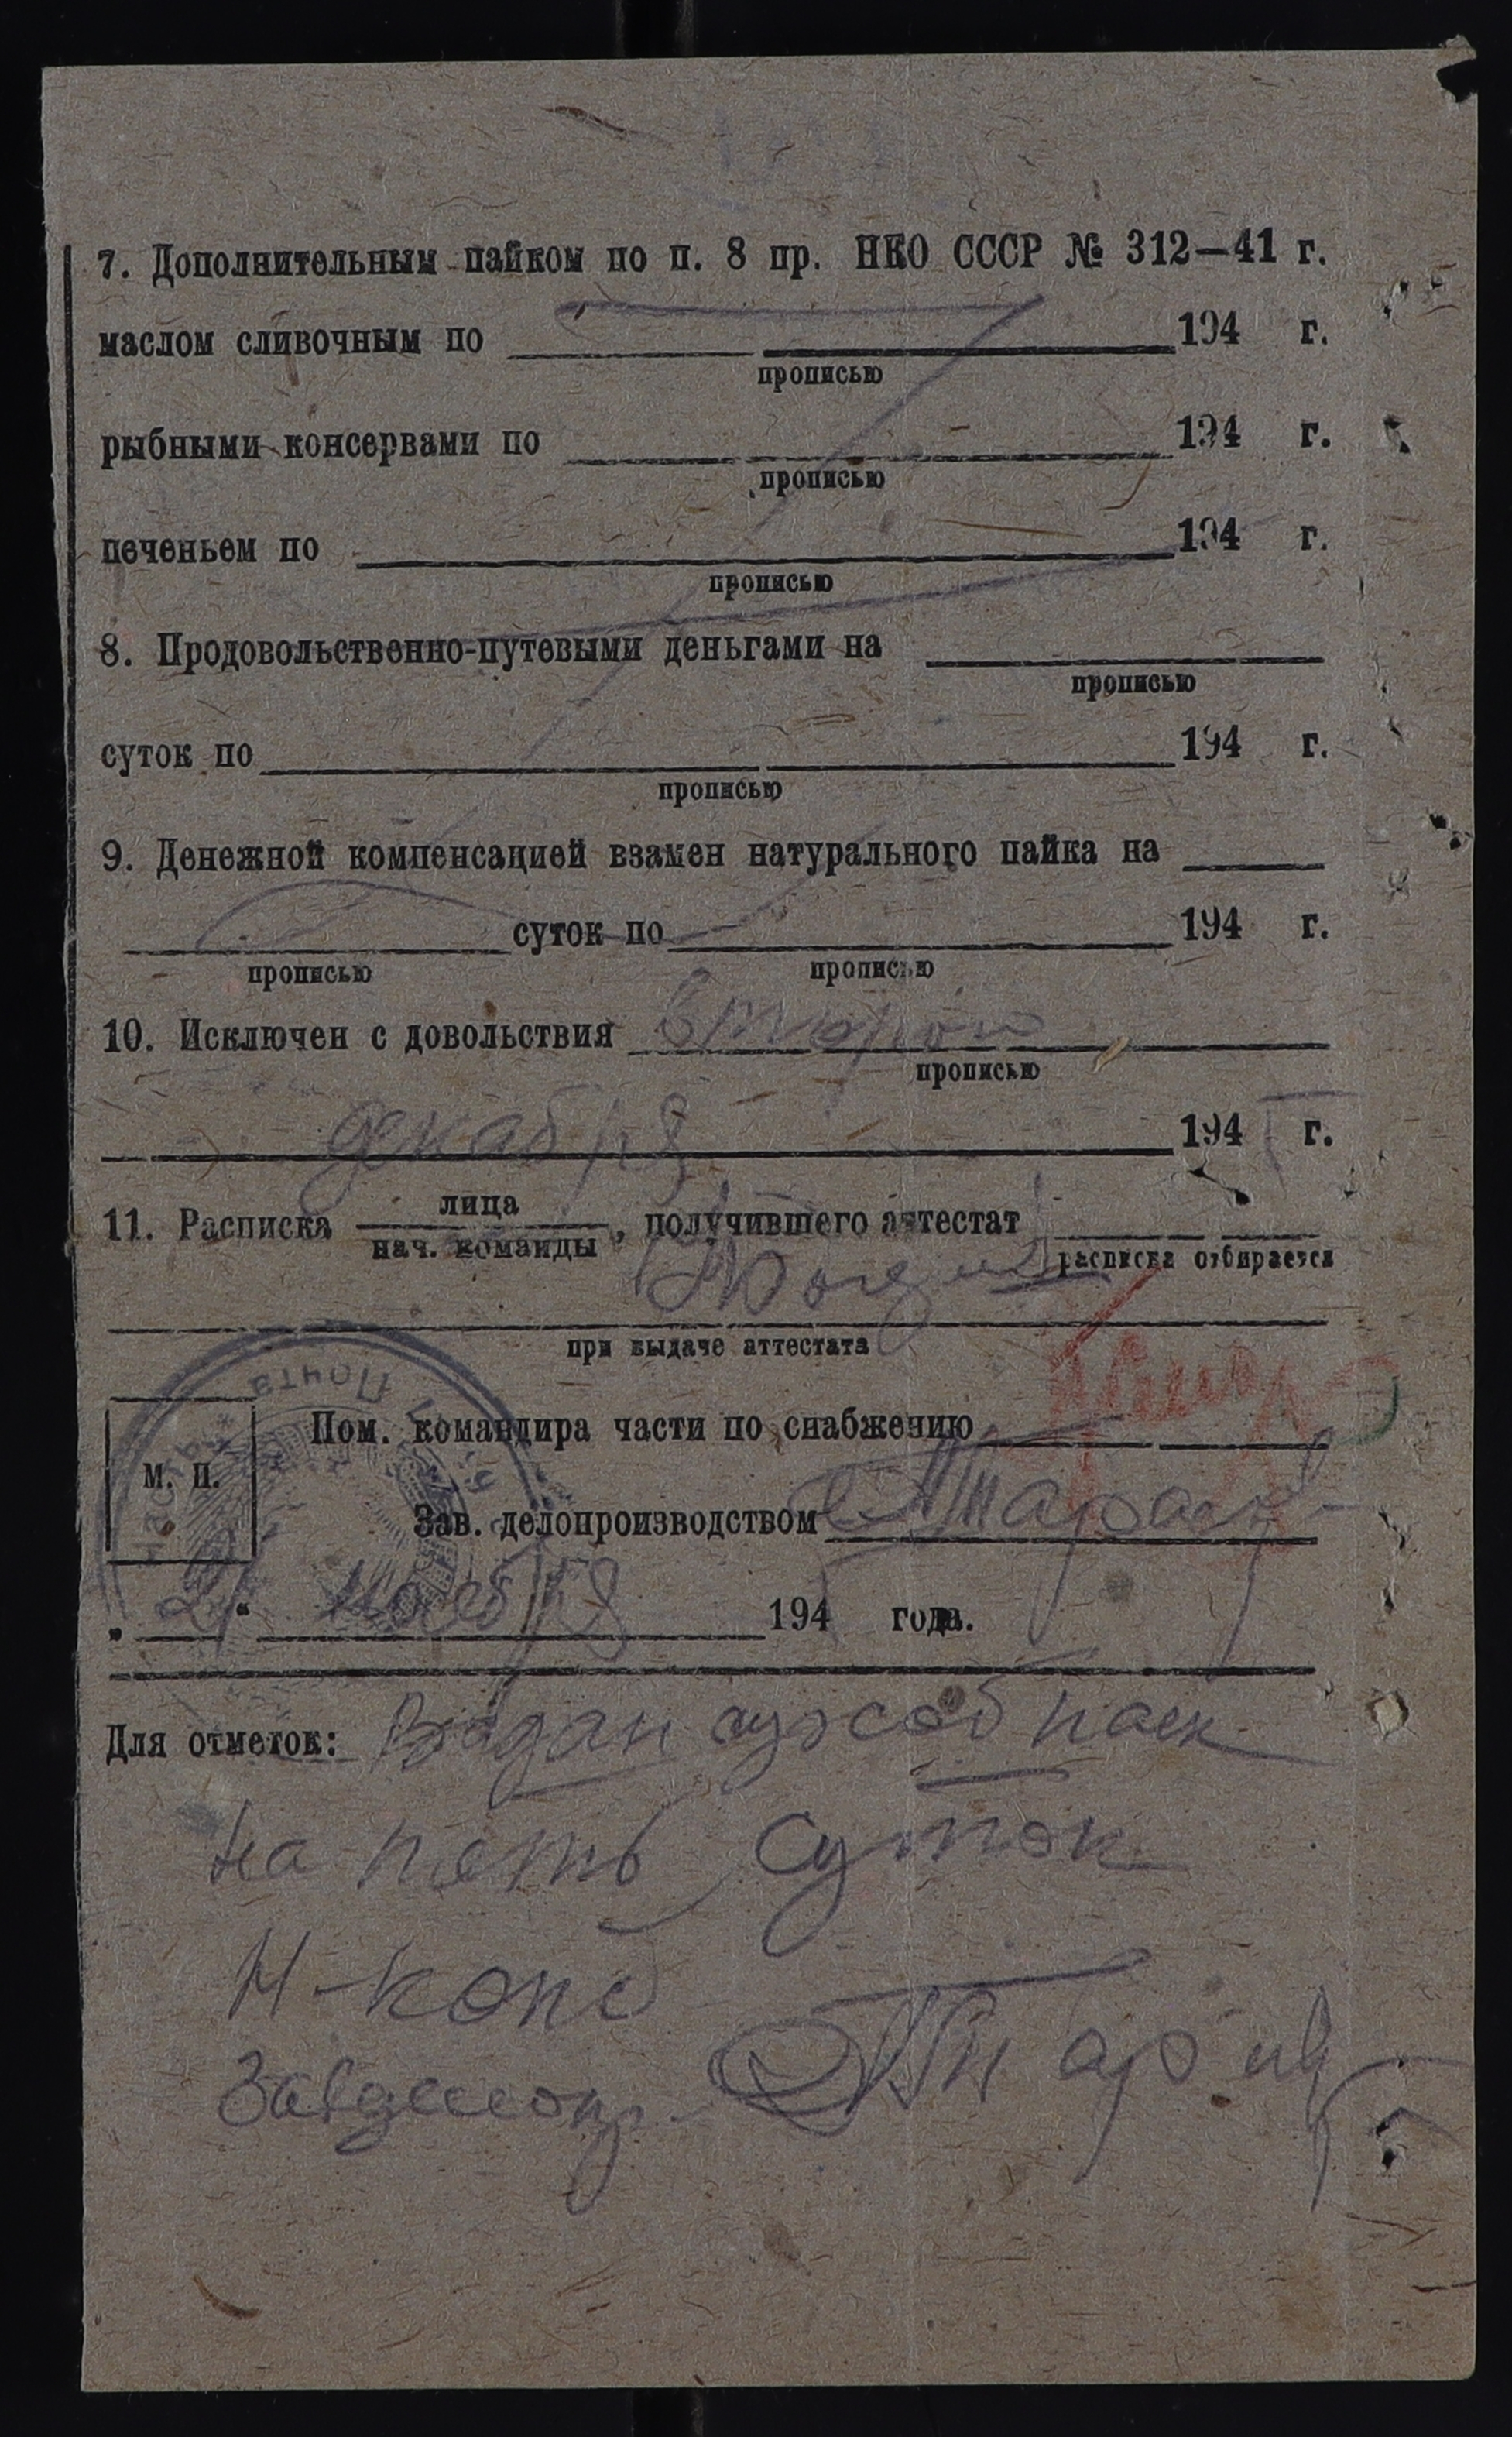 7. Дополнительным пайком по п. 8 пр. НКО СССР № 312—41 г.
маслом сливочным по 194 г.
прописью
рыбными консервами по 194 г.
прописью
печеньем по 194 г.
прописью
8. Продовольственно-путевыми деньгами на
прописью
суток по 194 г.
прописью
9. Денежной компенсацией взамен натурального пайка на
суток по 194 г.
прописью прописью
10. Исключен с довольствия второго
прописью
декабря 194 г.
11. Расписка лица
нач. команды , получившего аттестат
расписка отбирается
при выдаче аттестата
Почта
Пом. командира части по снабжению
М. П.
Зав. делопроизводством
„ 21 " ноября 194 года.
Для отметок: Выдан сухой паек
на пять суток
Завделоп.